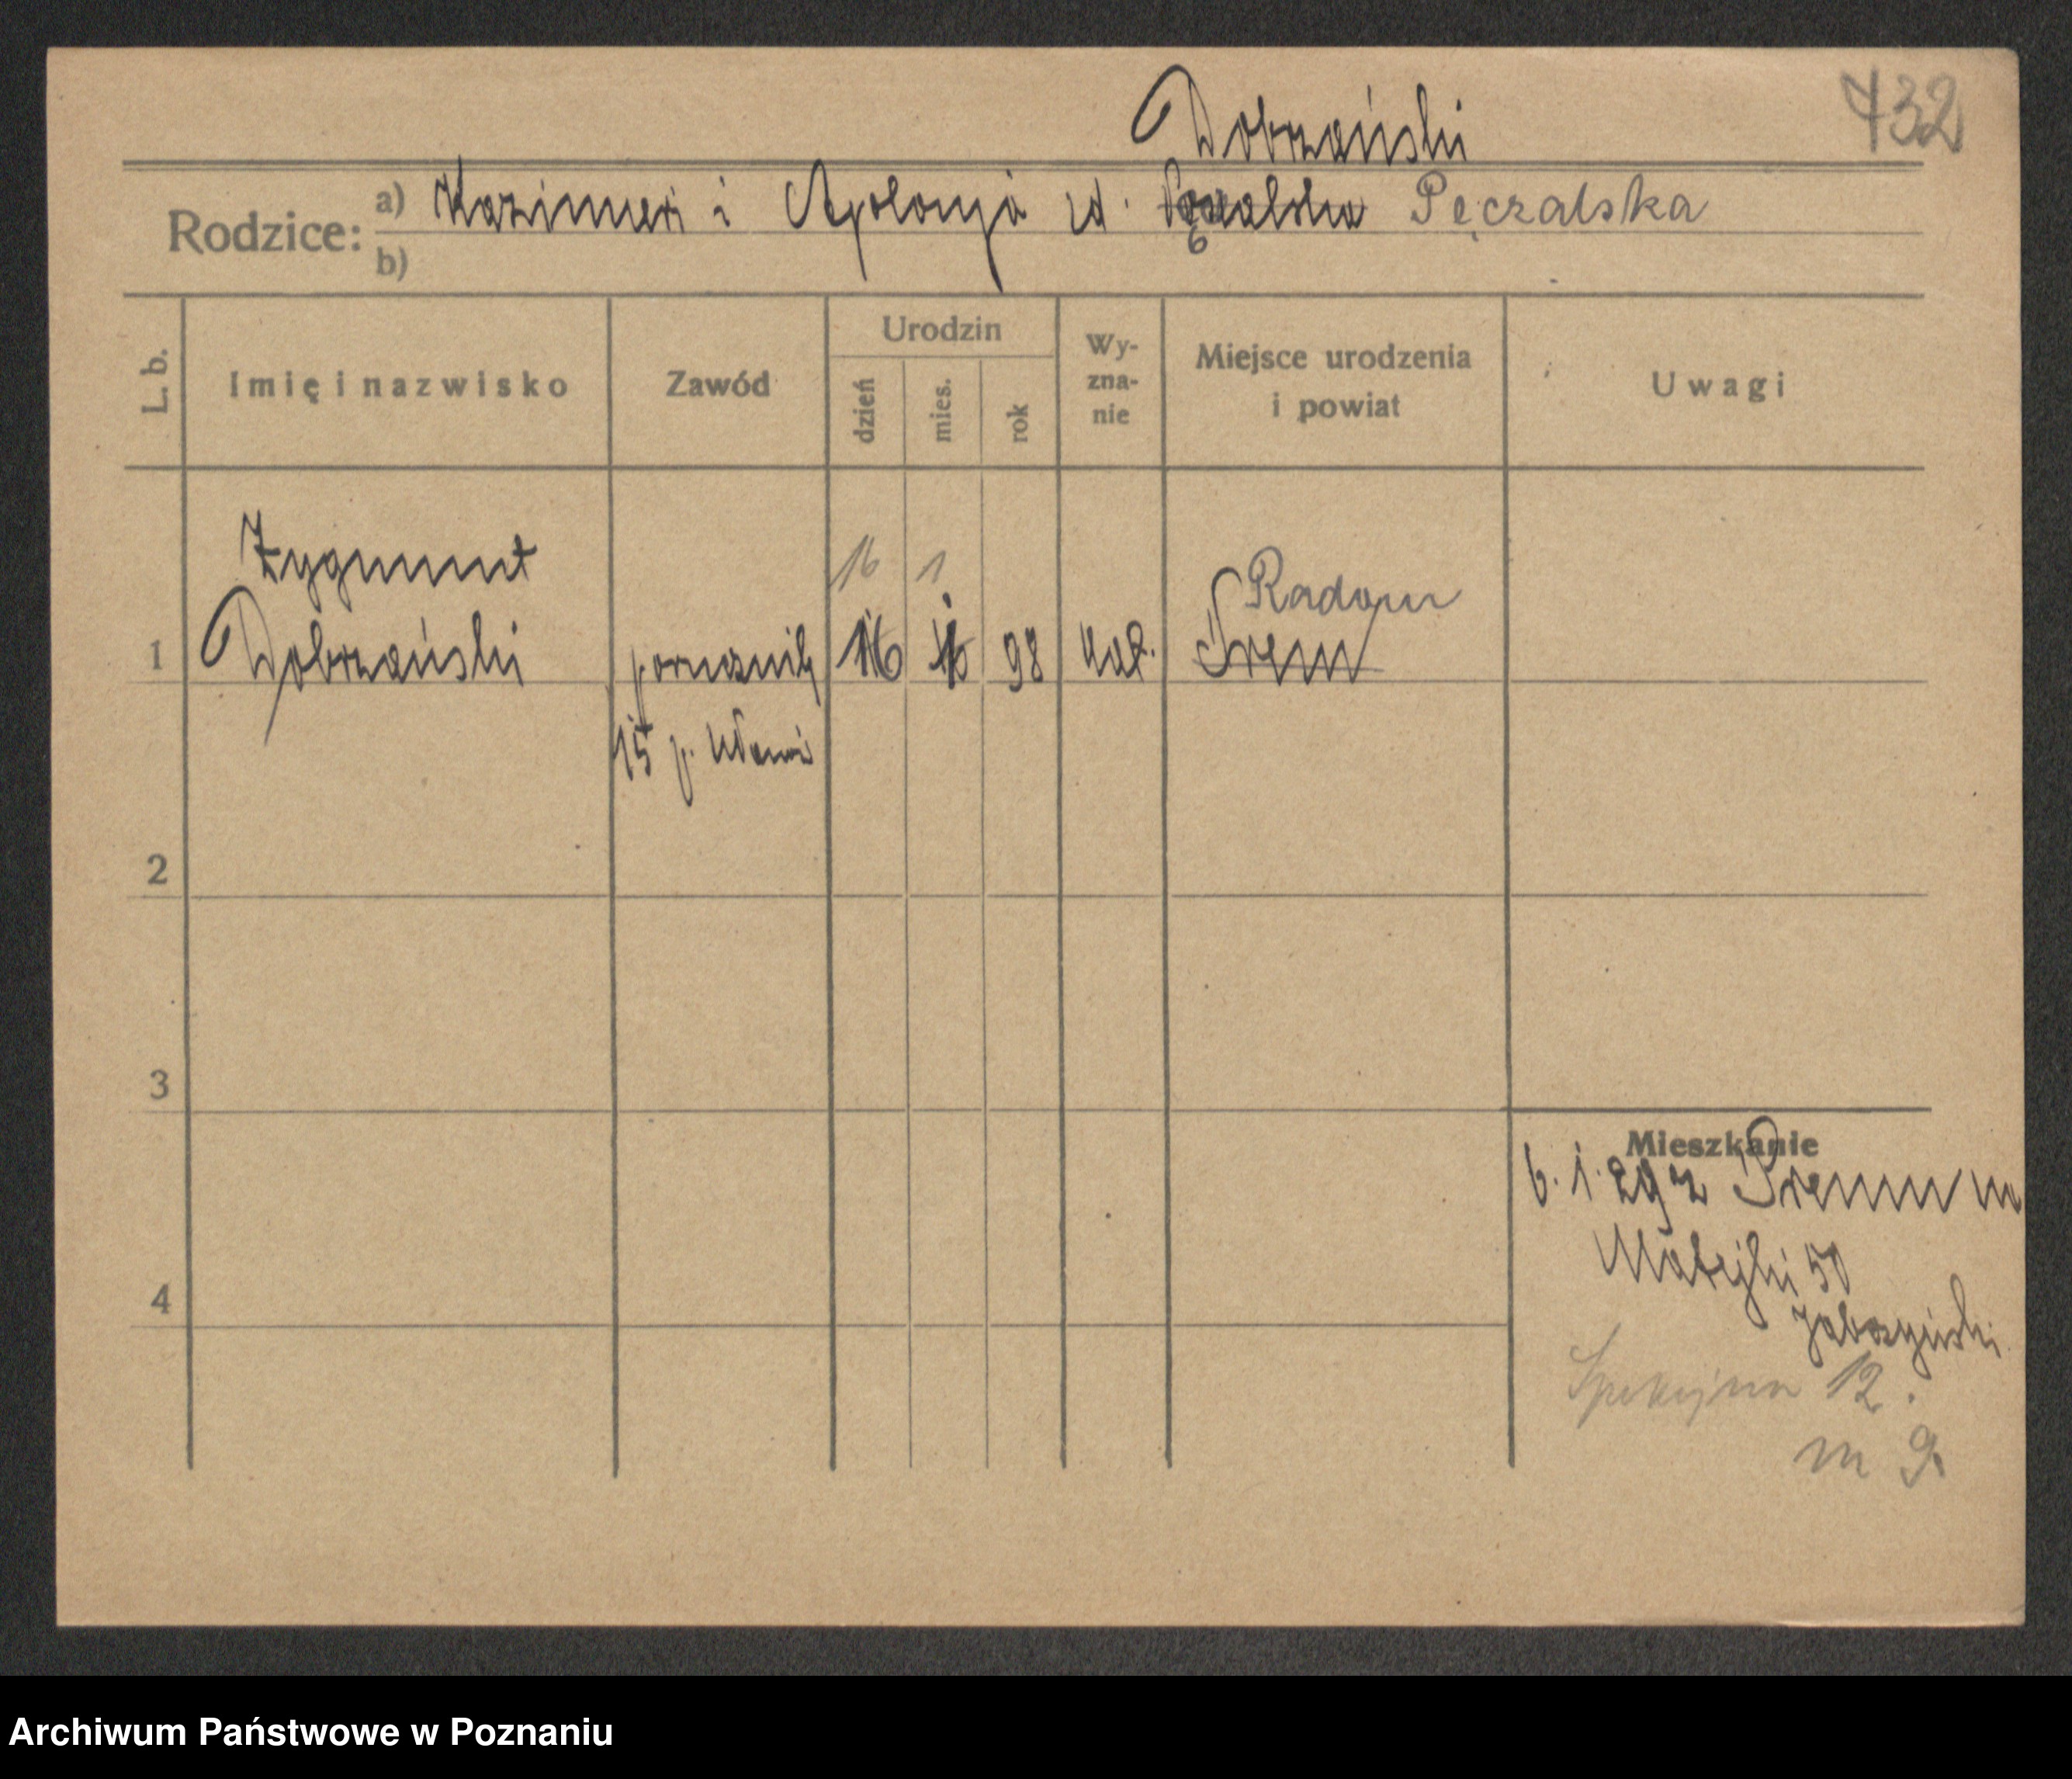 Dobrzański
432
Rodzice: a) Kazimierz i Apolonja zd. Pęczalska Pęczalska
b)
L. b. Imię i nazwisko Zawód Urodzin dzień mies. rok Wy-zna-nie Miejsce urodzenia i powiat Uwagi
Zygmunt 16 1 Radom
1 Dobrzański porucznik 16 1 98 kat. Śrem
15 p. Ułanów
2
3
Mieszkanie
6. 1. 29 z Śremu
Matejki 50
4
Spokojna 12.
m 9.
Archiwum Państwowe w Poznaniu